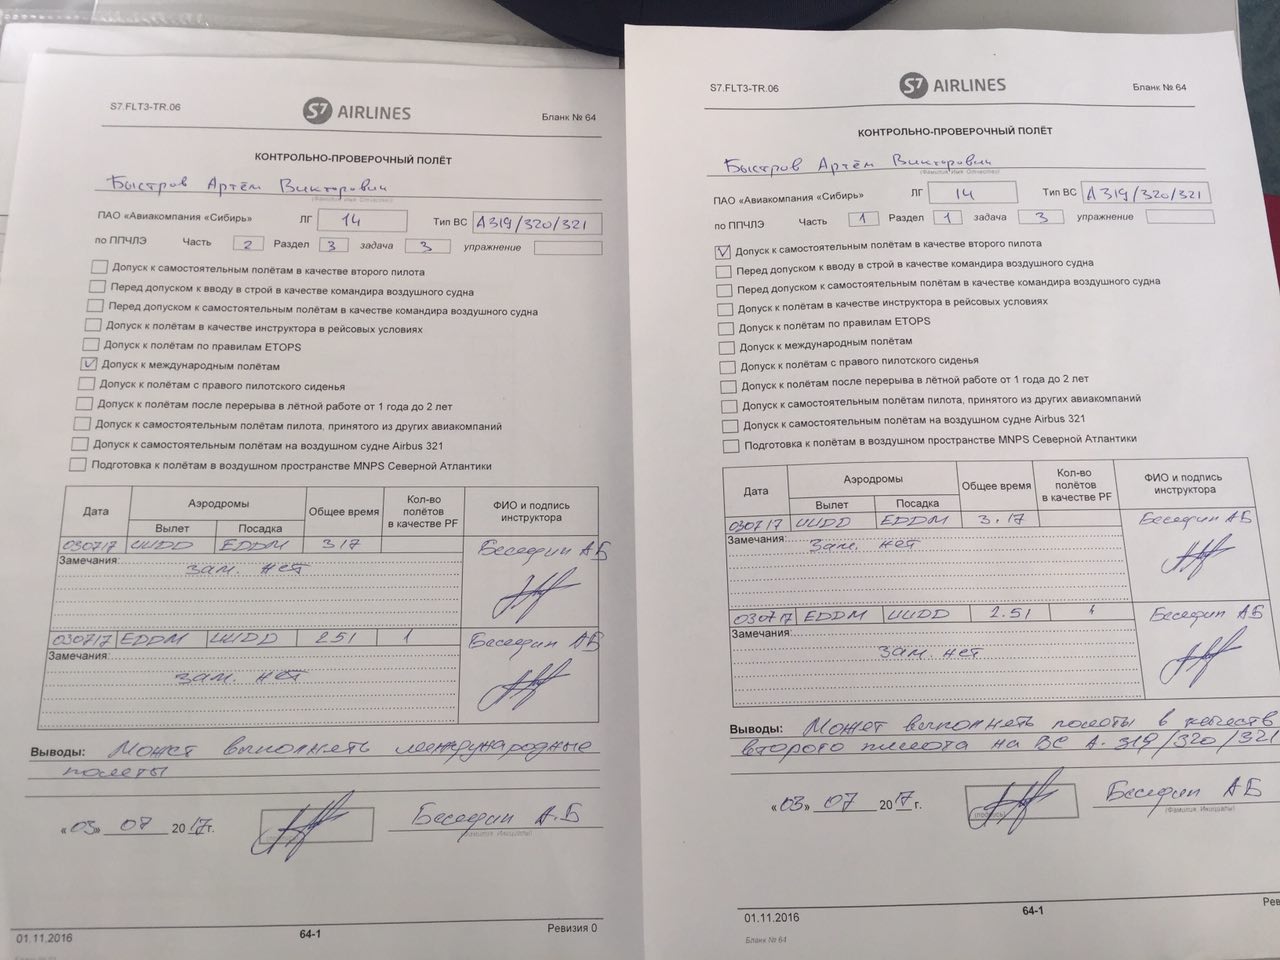 S7.FLT3-TR.06
S7 AIRLINES
Бланк № 64
КОНТРОЛЬНО-ПРОВЕРОЧНЫЙ ПОЛЁТ
Быстров Артём Викторович
(Фамилия Имя Отчество)
ПАО «Авиакомпания «Сибирь» ЛГ 14 Тип ВС А319/320/321
по ППЧЛЭ Часть 2 Раздел 3 задача 3 упражнение
Допуск к самостоятельным полётам в качестве второго пилота
Перед допуском к вводу в строй в качестве командира воздушного судна
Перед допуском к самостоятельным полётам в качестве командира воздушного судна
Допуск к полётам в качестве инструктора в рейсовых условиях
Допуск к полётам по правилам ETOPS
Допуск к международным полётам
Допуск к полётам с правого пилотского сиденья
Допуск к полётам после перерыва в лётной работе от 1 года до 2 лет
Допуск к самостоятельным полётам пилота, принятого из других авиакомпаний
Допуск к самостоятельным полётам на воздушном судне Airbus 321
Подготовка к полётам в воздушном пространстве MNPS Северной Атлантики
Дата Аэродромы Общее время Кол-во полётов в качестве PF ФИО и подпись инструктора
Вылет Посадка
030717 UUDD EDDM 317 Беседин АБ
Замечания: зам. нет
030717 EDDM UUDD 251 1 Беседин АБ
Замечания:
зам. нет
Выводы: Может выполнять международные
полеты
«03» 07 2017г. Беседин А.Б
(Фамилия Инициалы)
01.11.2016 64-1 Ревизия 0
S7.FLT3-TR.06
S7 AIRLINES
Бланк № 64
КОНТРОЛЬНО-ПРОВЕРОЧНЫЙ ПОЛЁТ
Быстров Артём Викторович
(Фамилия Имя Отчество)
ПАО «Авиакомпания «Сибирь» ЛГ 14 Тип ВС А319/320/321
по ППЧЛЭ Часть 1 Раздел 1 задача 3 упражнение
Допуск к самостоятельным полётам в качестве второго пилота
Перед допуском к вводу в строй в качестве командира воздушного судна
Перед допуском к самостоятельным полётам в качестве командира воздушного судна
Допуск к полётам в качестве инструктора в рейсовых условиях
Допуск к полётам по правилам ETOPS
Допуск к международным полётам
Допуск к полётам с правого пилотского сиденья
Допуск к полётам после перерыва в лётной работе от 1 года до 2 лет
Допуск к самостоятельным полётам пилота, принятого из других авиакомпаний
Допуск к самостоятельным полётам на воздушном судне Airbus 321
Подготовка к полётам в воздушном пространстве MNPS Северной Атлантики
Дата Аэродромы Общее время Кол-во полётов в качестве PF ФИО и подпись инструктора
Вылет Посадка
030717 UUDD EDDM 3.17 Беседин АБ
Замечания: зам. нет
030717 EDDM UUDD 2.51 1 Беседин АБ
Замечания:
зам. нет
Выводы: Может выполнять полеты в качеств
второго пилота на ВС А.319/320/321
«03» 07 2017г. (подпись) Беседин АБ
(Фамилия Инициалы)
01.11.2016 64-1 Рев
Бланк № 64